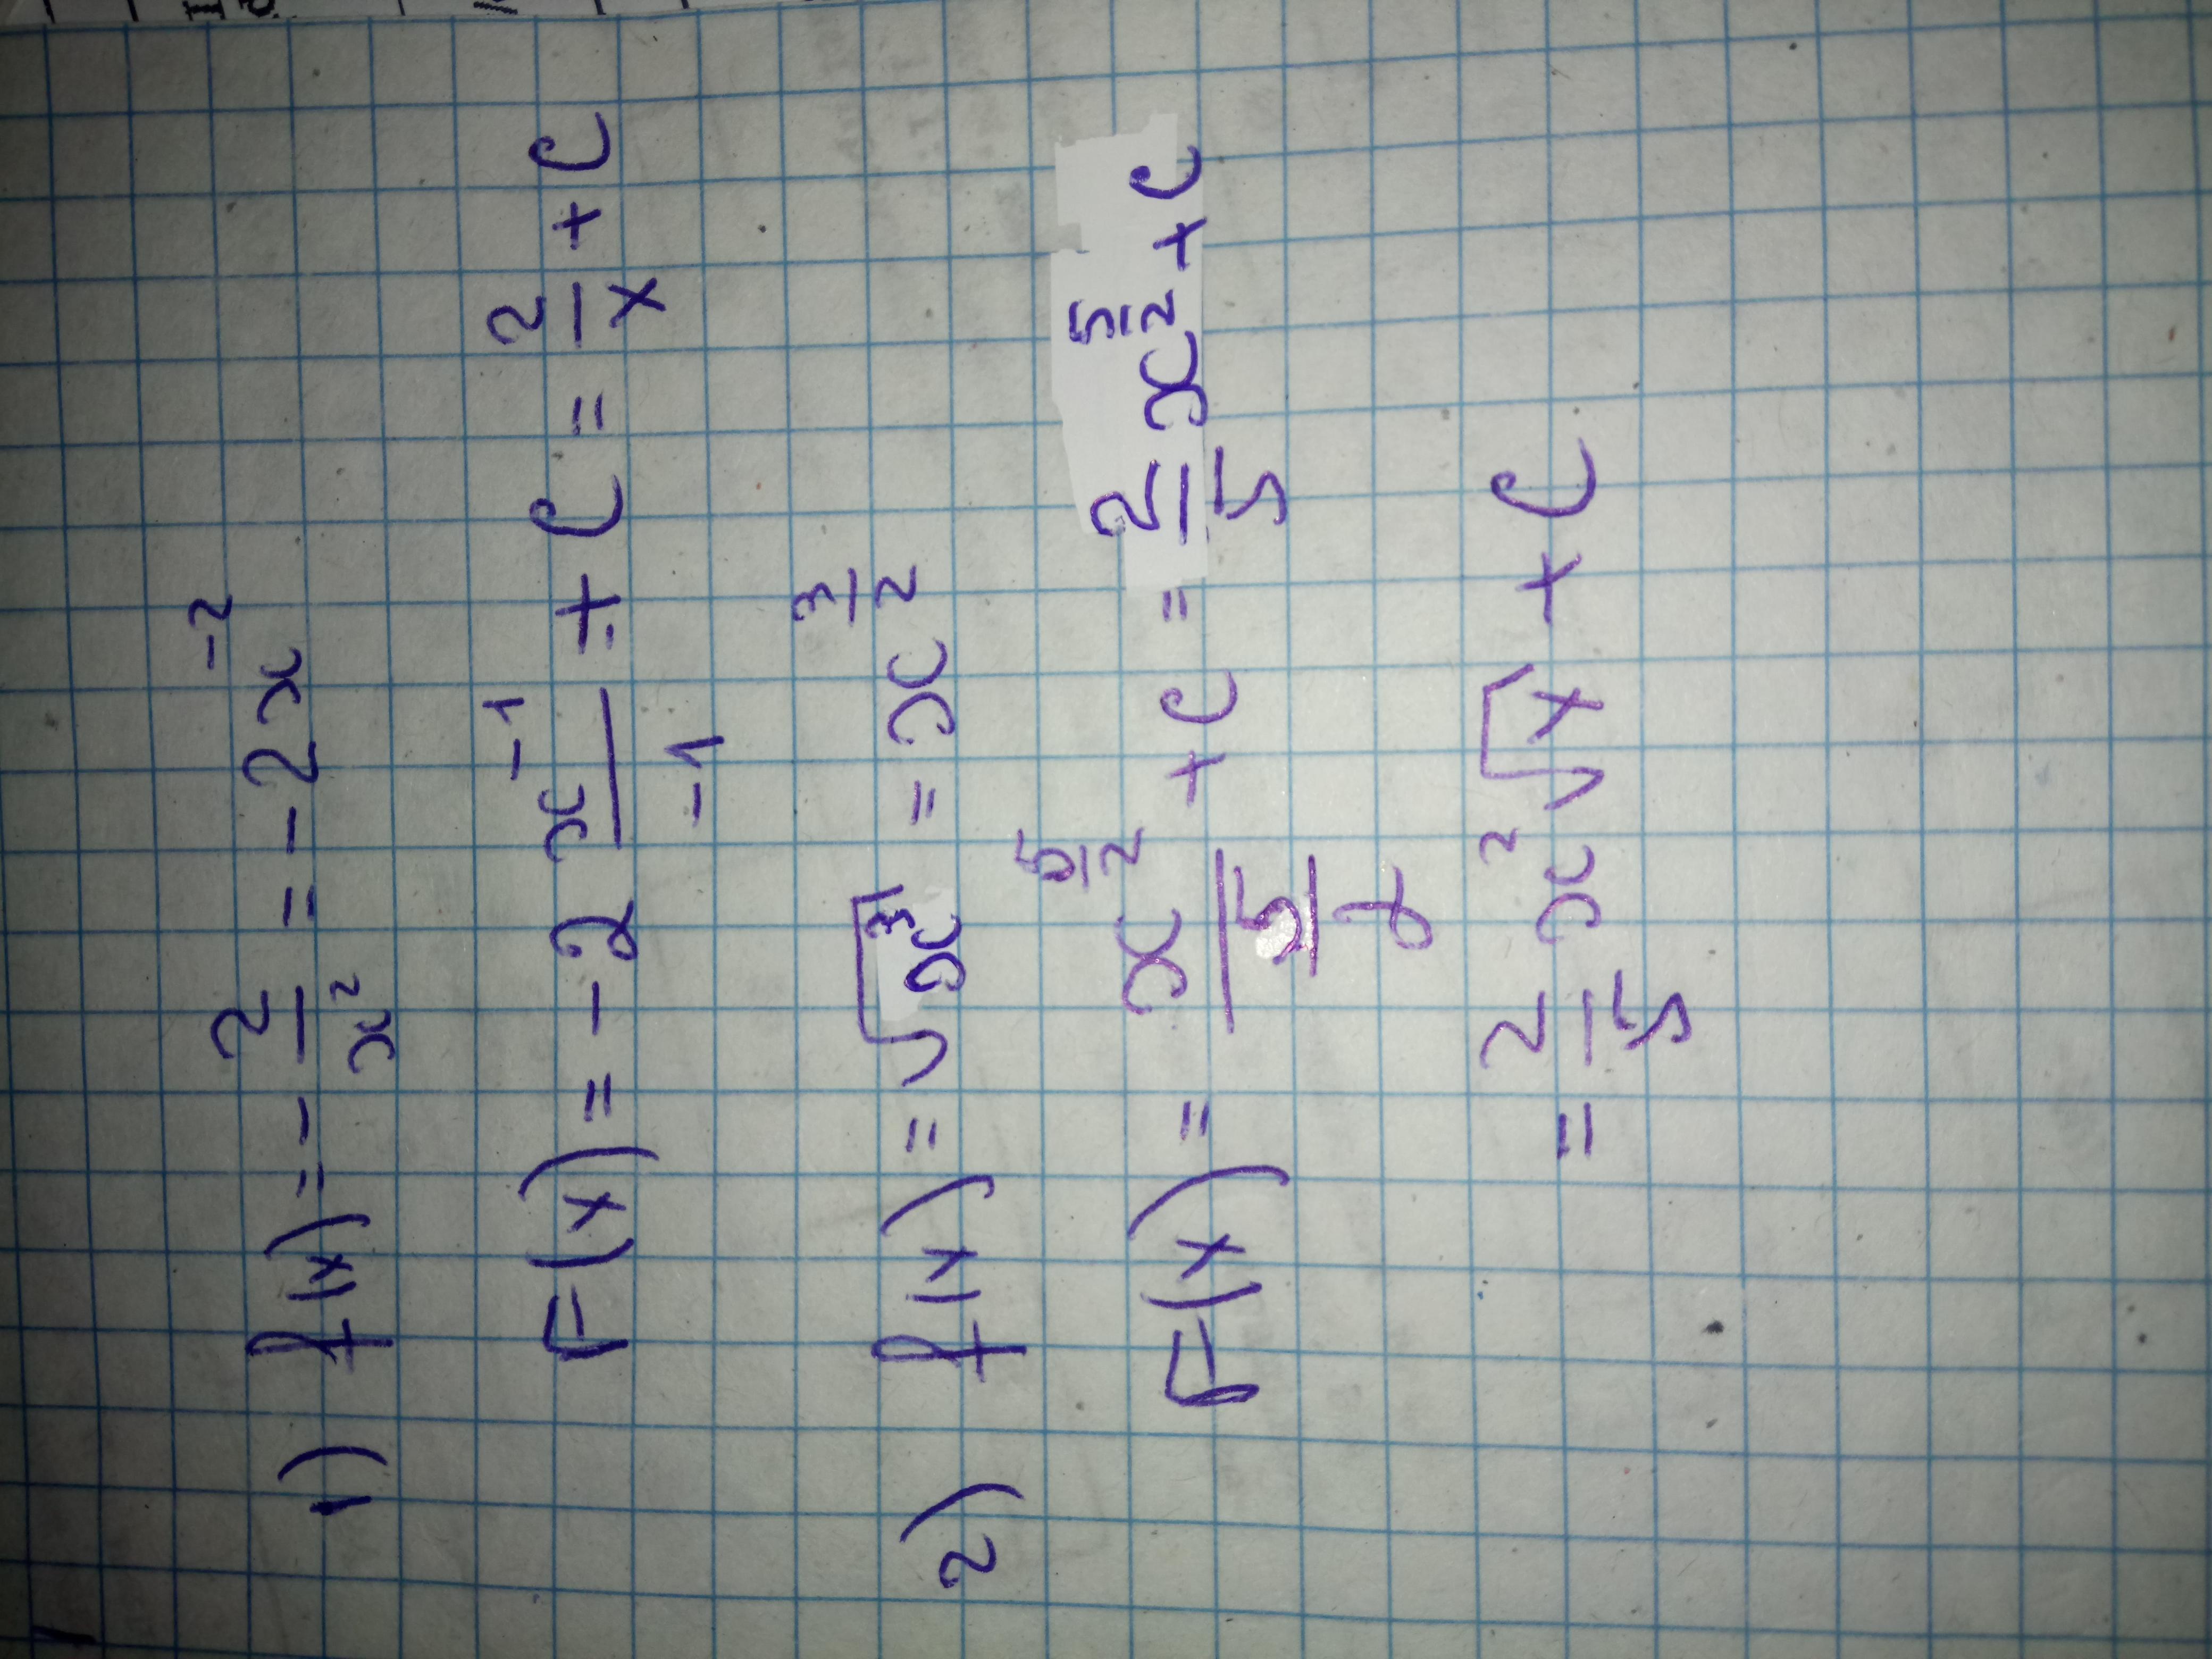 1) f(x) = - 2/x² = - 2x⁻²
F(x) = - 2 x⁻¹/-1 + C = 2/x + C
2) f(x) = √x³ = x^(3/2)
F(x) = x^(5/2)/(5/2) + C = 2/5 x^(5/2) + C
= 2/5 x² √x + C